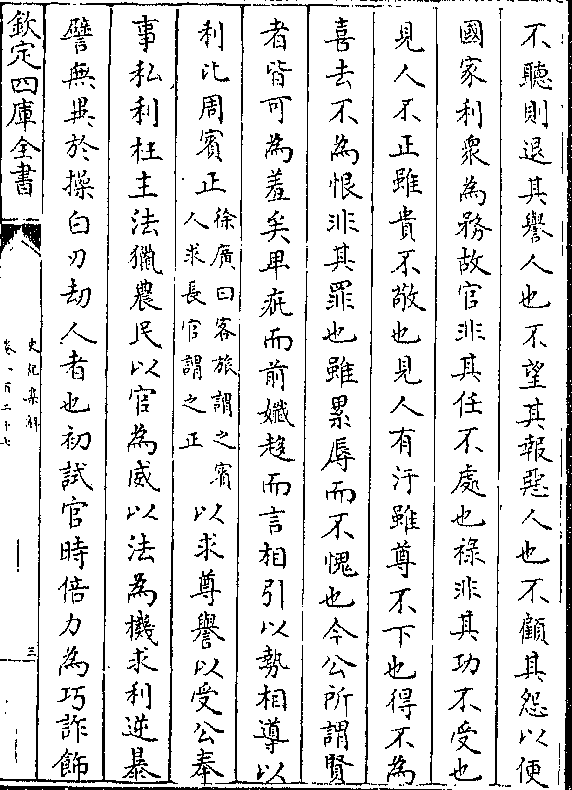 不聽則退其譽人也不望其報惡人也不顧其怨以便
國家利衆為務故官非其任不處也祿非其功不受也
見人不正雖貴不敬也見人有汙雖尊不下也得不為
喜去不為恨非其罪也雖累辱而不愧也今公所謂賢
者皆可為羞矣卑疵而前孅趨而言相引以勢相導以
利比周賓正
徐廣曰客旅謂之賓
人求長官謂之正
以求尊譽以受公奉
事私利枉主法獵農民以官為威以法為機求利逆暴
譬無異於操白刃劫人者也初試官時倍力為巧詐飾
欽定四庫全書
史記集解
卷一百二十七
三